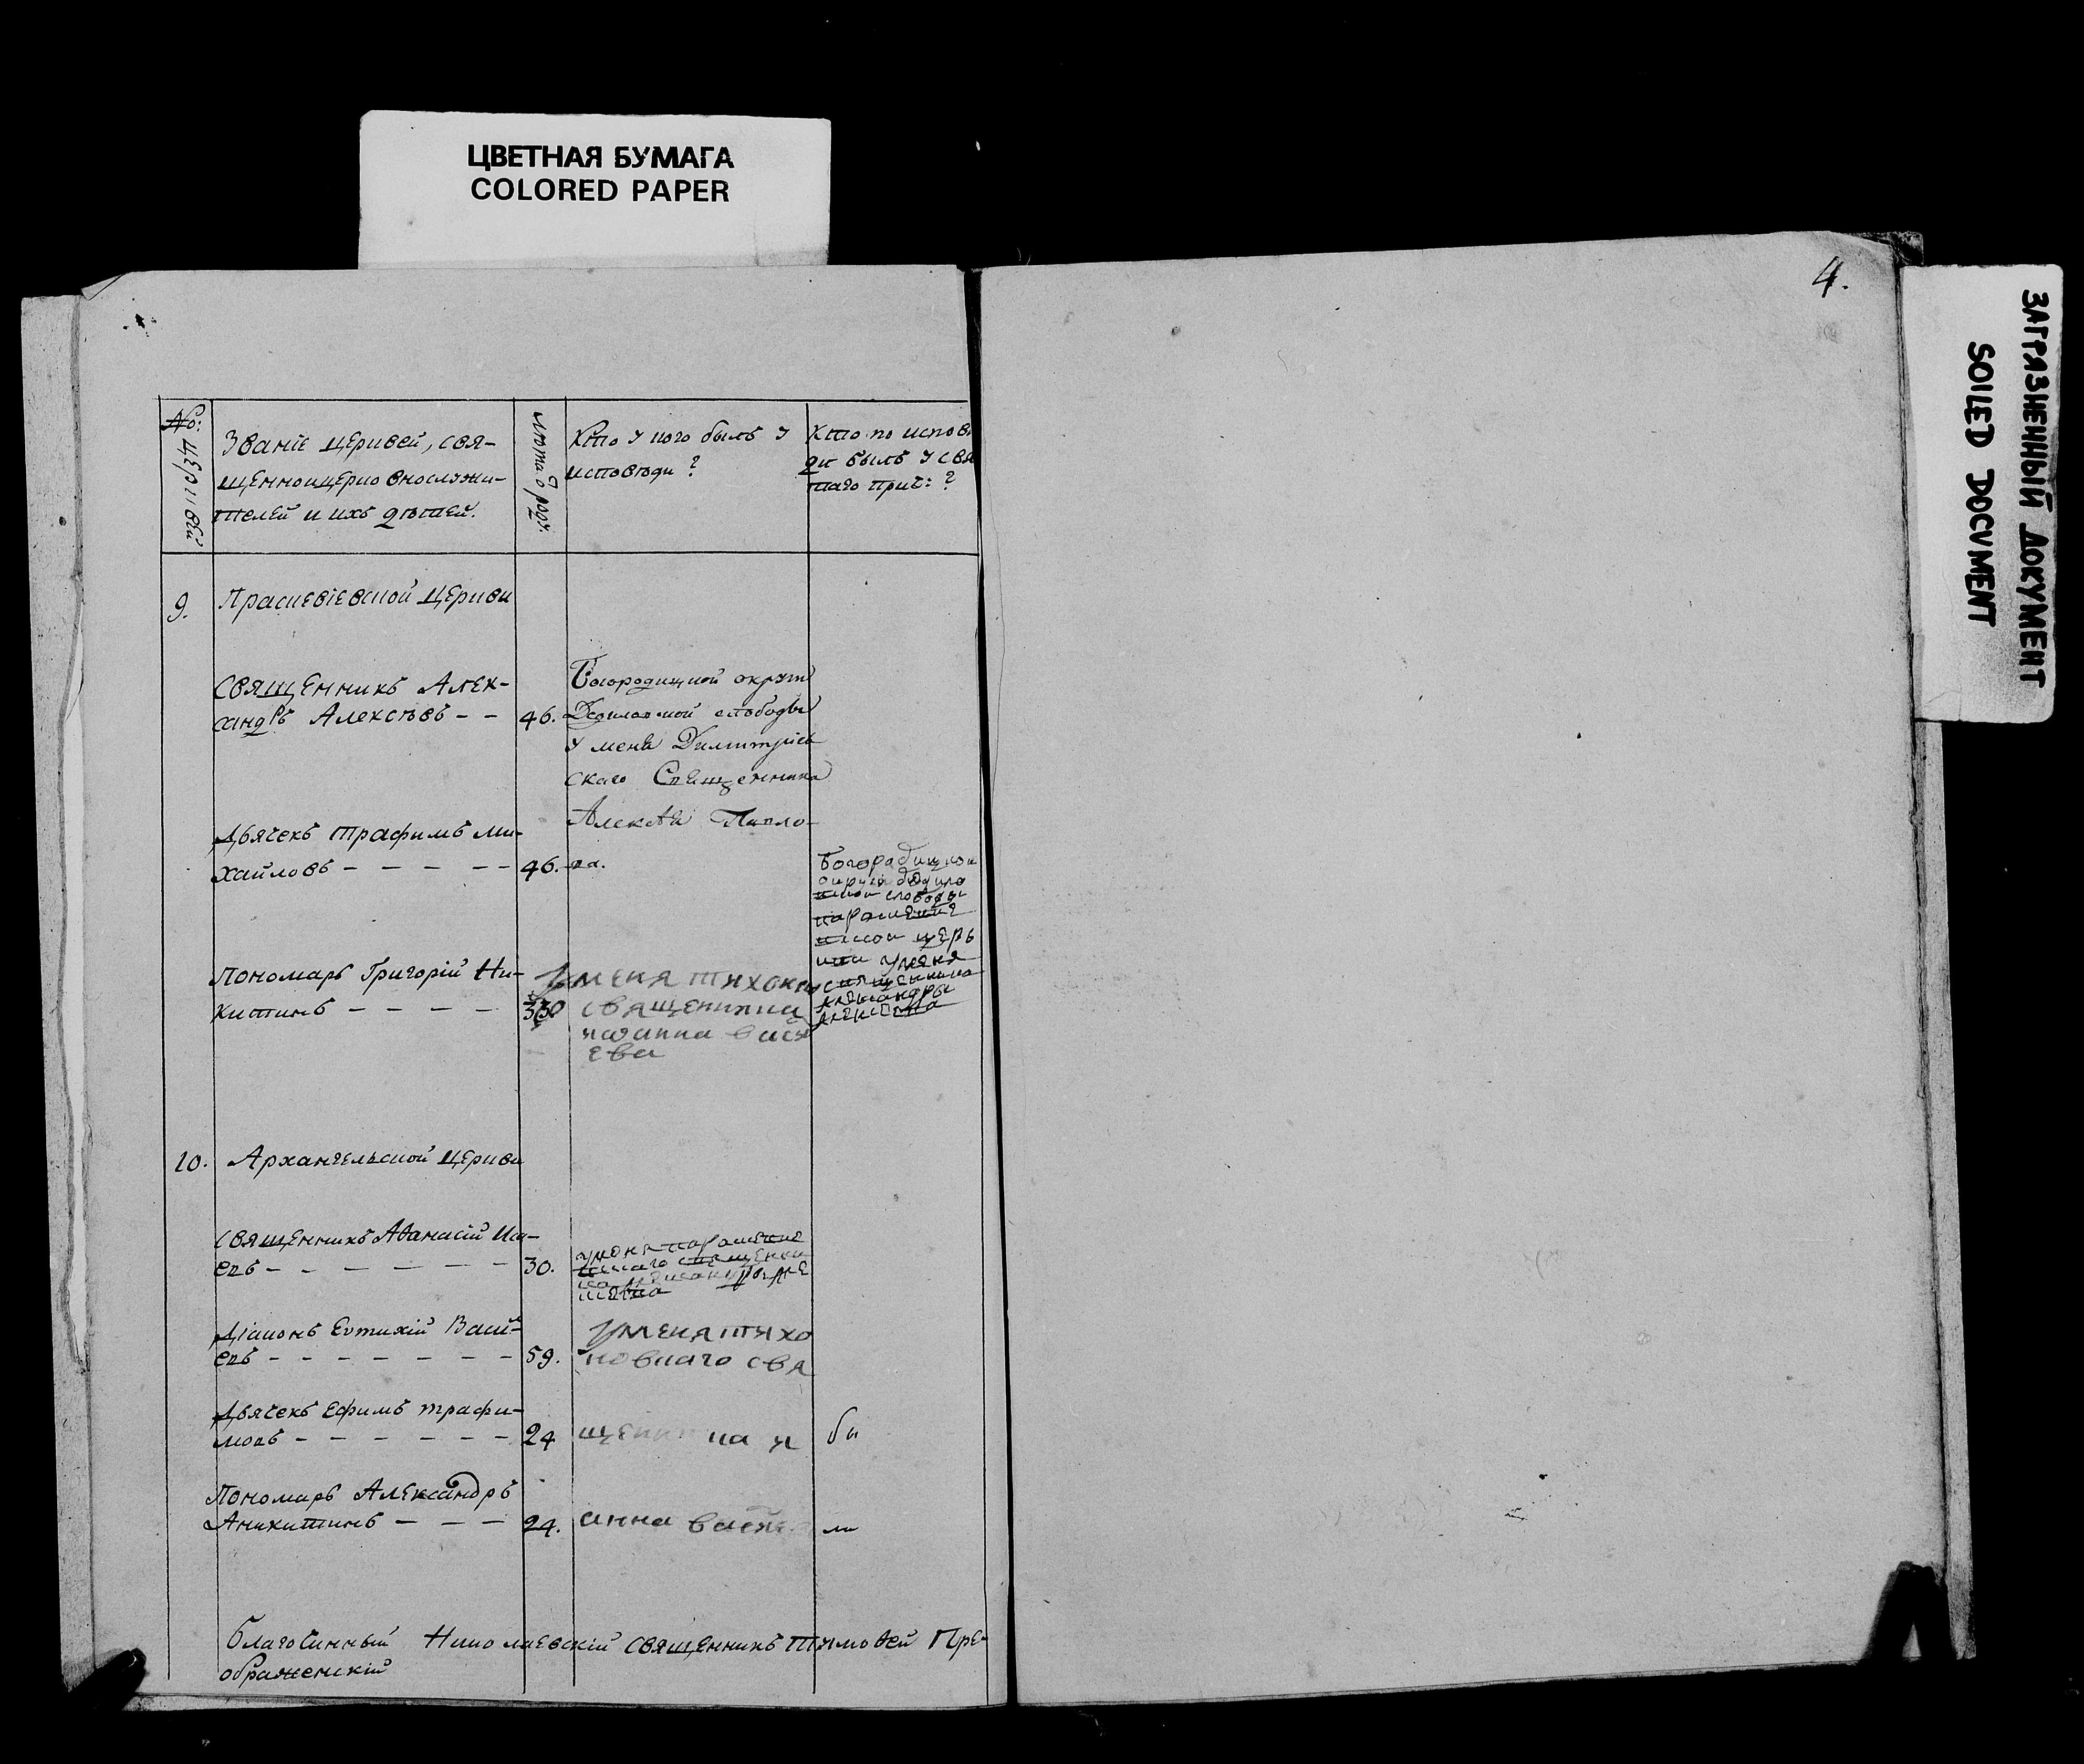 ЦВЕТНАЯ БУМАГА
COLORED PAPER
4.
ЗАГРЯЗНЕННЫЙ ДОКУМЕНТ
SOILED DOCUMENT
№: церквей
Званіе церквей, свя-
щенноцерковнослужи-
телей и ихъ дѣтей.
лѣта о рожд:
Кто у кого былъ у
исповѣди?
Кто по испов
ди былъ у свя
таго прич:?
9.
Праскевіевской церкви
Священникъ Алек-
сандръ Алексѣевъ - - 46.
Богородицкой округи
слободы
у меня Димитріев
скаго Священника
Алексѣя Павло-
ва.
Дьячекъ Трафимъ Ми-
хайловъ - - - - - 46.
Богородицкой
округи
слободы
церь
кви у меня
священника
александры
алексѣева
Пономарь Григорій Ни-
китинъ - - - -
У меня тихонов
священника
иоанна васил
ева
10.
Архангельской церкви
Священникъ Аѳанасій Иса-
евъ - - - - - - - 30.
у меня параскеве
вскаго священни
ка александры але
ксѣева
Діаконъ Евтихій Васил-
евъ - - - - - - - 59.
У меня тихо
новскаго свя
Дьячекъ Ефимъ Трафи-
мовъ - - - - - - 24
щенника и
бы
Пономарь Александръ
Аникитинъ - - - 24.
анна васил
ли
Благочинный Николаевскій священникъ Тимоѳей Пре-
ображенскій